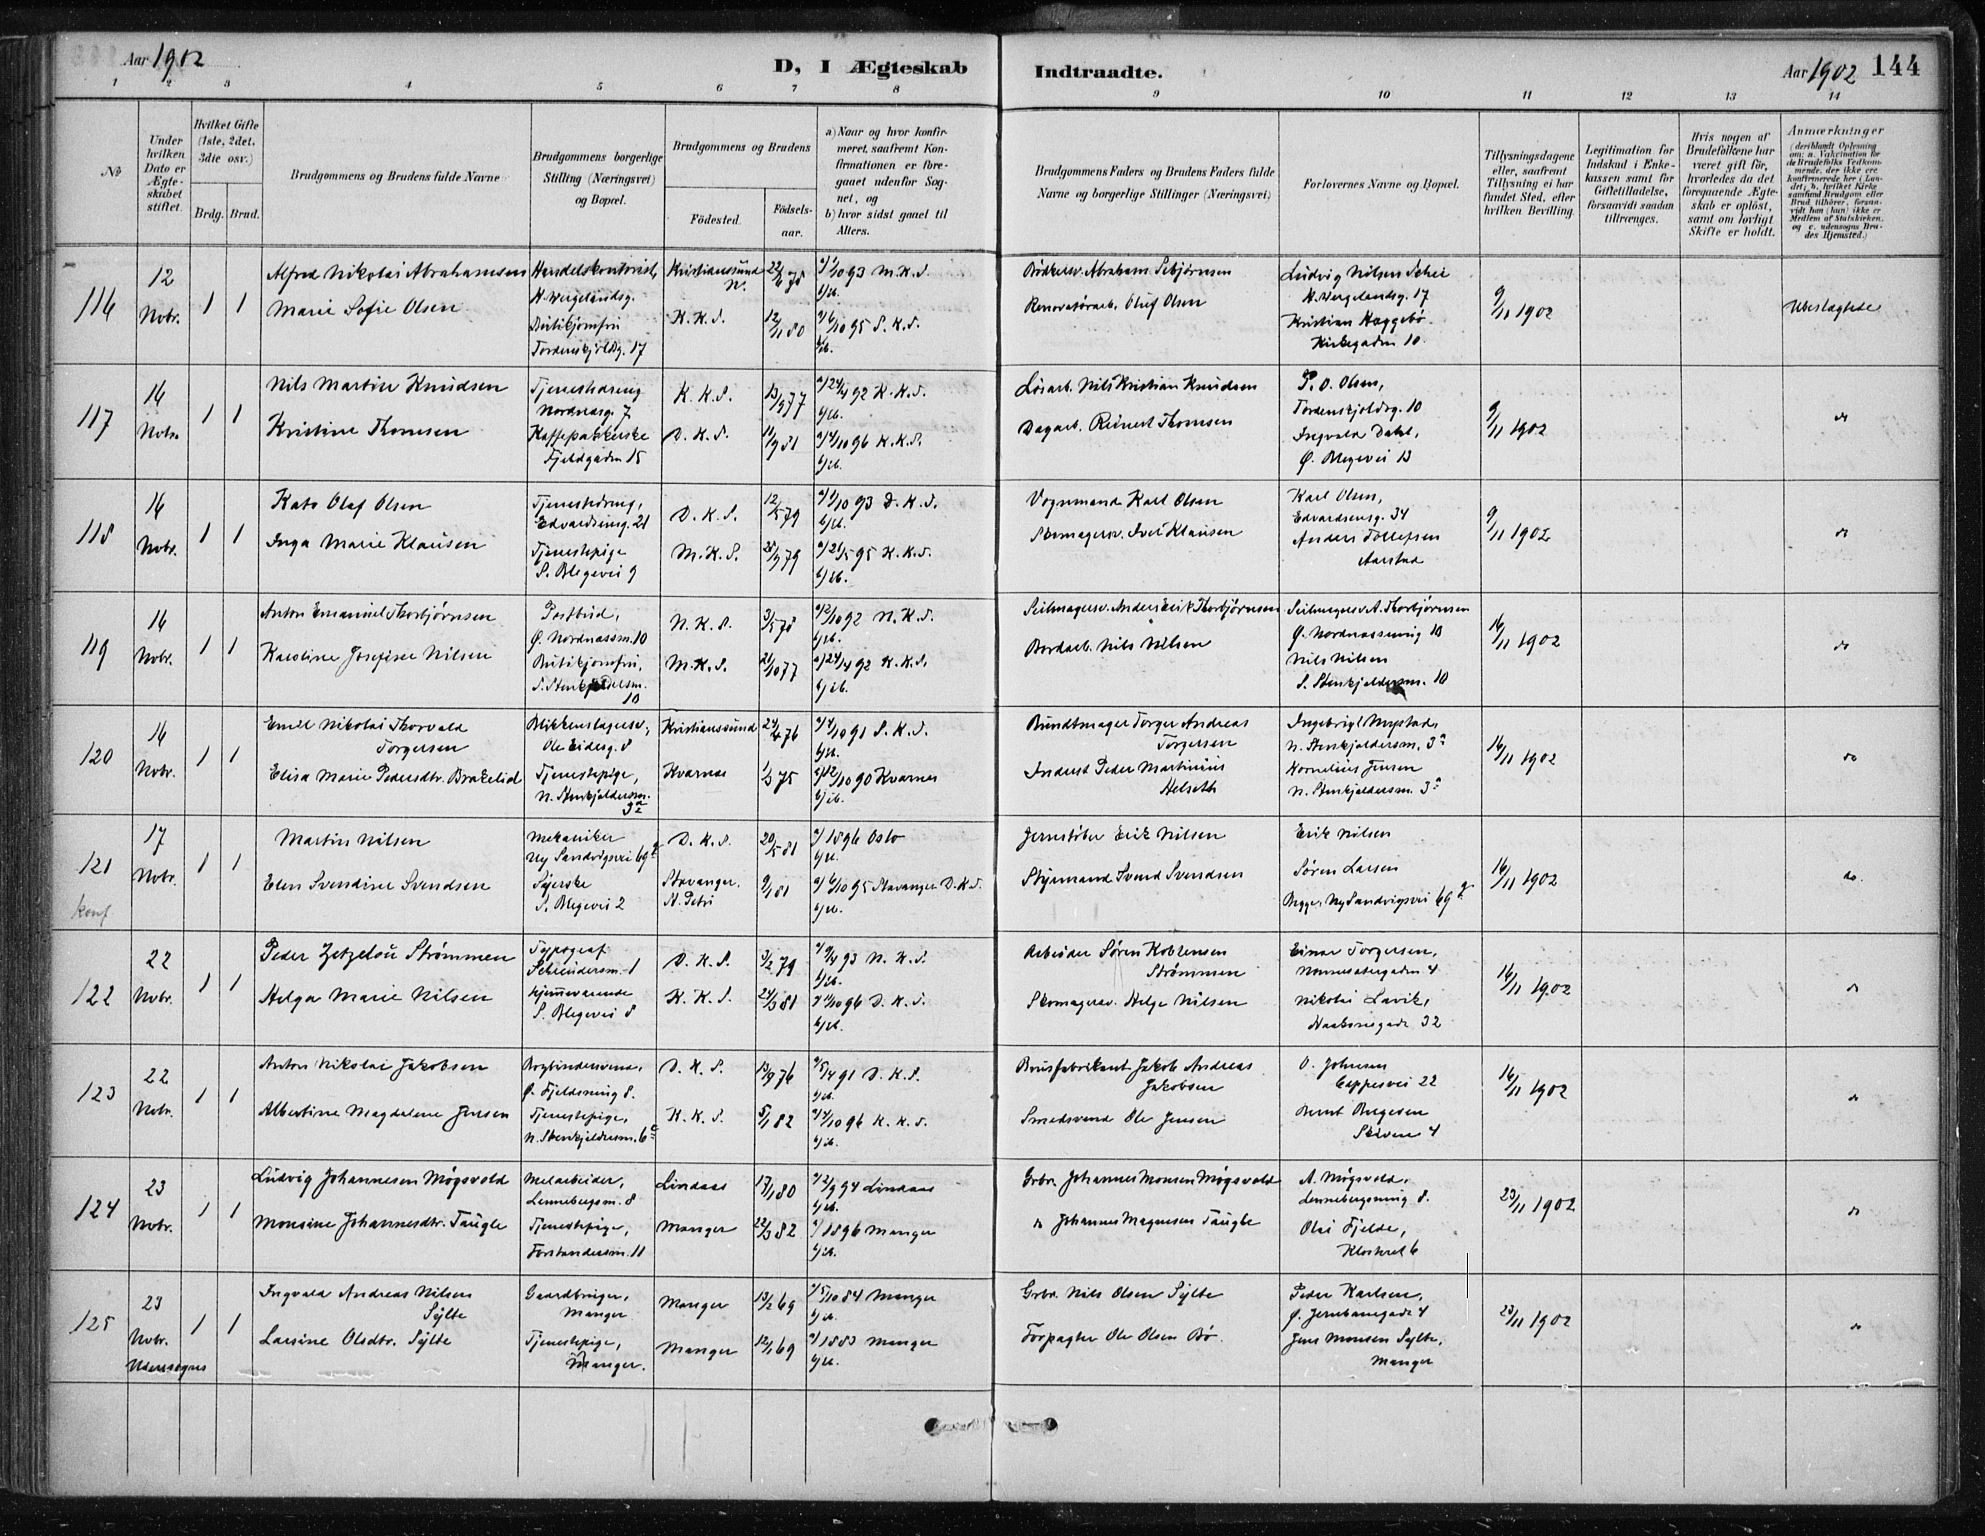 Aar 1902
D, I Ægteskab
Indtraadte.
Aar 1902 144
1 2 3 4 5 6 7 8 9 10 11 12 13 14
No
Under hvilken Dato er Ægteskabet stiftet.
Hvilket Gifte (1ste, 2det, 3die osv.)
Brdg. Brud.
Brudgommens og Brudens fulde Navne
Brudgommens borgerlige Stilling (Næringsvei) og Bopæl.
Brudgommens og Brudens
Födested.
Födselsaar.
a) Naar og hvor konfirmeret, saafremt Konfirmationen er foregaaet udenfor Sognet, og
b) hvor sidst gaaet til Alters.
Brudgommens Faders og Brudens Faders fulde Navne og borgerlige Stillinger (Næringsvei)
Forlovernes Navne og Bopæl.
Tillysningsdagene eller, saafremt Tillysning ei har fundet Sted, efter hvilken Bevilling.
Legitimation for Indskud i Enkekassen samt for Giftetilladelse, forsaavidt saadan tiltrænges.
Hvis nogen af Brudefolkene har været gift för, hvorledes da det foregaaende Ægteskab er oplöst, samt om lovligt Skifte er holdt.
Anmærkninger (deriblandt Oplysning om: a. Vakcination for de Brudefolks Vedkommende, der ikke ere konfirmerede her i Landet; b. hvilket Kirkesamfund Brudgom eller Brud tilhörer, forsaavidt han (hun) ikke er Medlem af Statskirken, og c. udensogns Brudes Hjemsted.)
116
12 Nobr. 1 1
Alfred Nikolai Abrahamsen
Marie Sofie Olsen
Handelskontorist,
H. Wergelandsg.
Butikjomfru
Tordenskjoldsg. 17
Kristianssund N. 22/6 78
K. K. S. 12/11 80
a) 1/10 93 M. K. S.
b) ib.
a) 6/10 95 S. K. S.
b) ib.
Bödkersv. Abraham Sebjörnsen
Renovatörarb. Oluf Olsen
Ludvig Nilsen Schei
H. Wergelandsg. 17
Kristian Haggebö
Kirkegaden 10.
9/11 1902
Ubeslægtede
117
16 Nobr. 1 1
Nils Martin Knudsen
Kristine Thomsen
Tjenestedreng
Nordnæsg. 7
Kaffepakkerske
Fjeldgaden 15
K. K. S. 13/9 77
D. K. S. 11/9 81
a) 24/4 92 K. K. S.
b) ib.
a) 4/10 96 K. K. S.
b) ib.
Lösarb. Nils Kristian Knudsen
Dagarb. Reinert Thomsen
P. O. Olsen,
Tordenskjoldsg. 10
Ingvald Dahl,
Ö. Blegevei 13
9/11 1902
do
118
16 Nobr. 1 1
Kato Olaf Olsen
Inga Marie Klausen
Tjenestedreng,
Edvardseng. 21
Tjenestepige
S. Blegevei 9
D. K. S. 12/5 79
M. K. S. 28/9 79
a) 1/10 93 D. K. S.
b) ib.
a) 26/5 95 K. K. S.
b) ib.
Vognmand Karl Olsen
Skomagersv. Iver Klausen
Karl Olsen,
Edvardseng. 34
Anders Tollefsen
Aarstad
9/11 1902
do
119
16 Nobr. 1 1
Anton Emanuel Thorbjörnsen
Karoline Josefine Nilsen
Postbud,
Ö. Nordnæssm. 10
Butikjomfru,
S. Stenkjeldersm. 10
N. K. S. 3/5 78
M. K. S. 21/10 77
a) 2/10 92 N. K. S.
b) ib.
a) 24/4 92 K. K. S.
b) ib.
Seilmagersv. Anders Erik Thorbjörnsen
Bordarb. Nils Nilsen
Seilmagersv. A. Thorbjörnsen
Ö. Nordnæssmug 10
Nils Nilsen
S. Stenkjeldersm. 10
16/11 1902
do
120
16 Nobr. 1 1
Emil Nikolai Thorvald
Torgersen
Elisa Marie Pedersdtr. Brakelid
Blikkenslagersv.,
Ole Eidesg. 8
Tjenestepige,
N. Stenkjeldersm. 3a
Kristianssund 24/4 76
Kvarnes 1/3 75
a) 4/10 91 S. K. S.
b) ib.
a) 12/10 90 Kvarnes
b) ib.
Bundtmager Torger Andreas
Torgersen
Inderst Peder Martinius
Helseth
Ingebrigt Mystad,
N. Stenkjeldersm. 3a
Kornelius Jensen
N. Stenkjeldersm. 3a
16/11 1902
do
121
konf
17 Nobr. 1 1
Martin Nilsen
Elen Svendine Svendsen
Mekaniker
Ny Sandvigsvei 69
Syerske
S. Blegevei 2
D. K. S. 20/5 81
Stavanger.
St. Petri 9/1 81
a) 1896 Oslo
b) ib.
a) 6/10 95 Stavanger D. K. S.
b) ib.
Jernstöber Erik Nilsen
Styrmand Svend Svendsen
Erik Nilsen
Sören Larsen
Begge: Ny Sandvigsvei 69
16/11 1902
do.
122
22 Nobr. 1 1
Peder Zetzelau Strömmen
Helga Marie Nilsen
Typograf
Schreudersm. 1
hjemmeværende
S. Blegevei 8
D. K. S. 3/2 79
K. K. S. 24/3 81
a) 9/4 93 N. K. S.
b) ib.
a) 4/10 96 D. K. S.
b) ib.
Arbeider Sören Koblensen
Strömmen
Skomagersv. Helge Nilsen
Einar Torgersen,
Nonnesætergaden 4
Nikolai Lavik,
Haakonsgade 32
16/11 1902
do
123
22 Nobr. 1 1
Anton Nikolai Jakobsen
Albertine Magdalene Jensen
Bogbindersvend,
Ö. Fjeldsmug 8.
Tjenestepige,
N. Stenkjeldersm. 6
D. K. S. 13/9 76
K. K. S. 5/1 82
a) 5/4 91 D. K. S.
b) ib.
a) 4/10 96 K. K. S.
b) ib.
Brusfabrikant Jakob Andreas
Jakobsen
Smedsvend Ole Jensen
O. Johnsen
Cappesvei 22
Bernt Bergesen
Skiven 4
16/11 1902
do
124
23 Nobr. 1 1
Ludvig Johannesen Mögsvold
Monsine Johannesdtr. Taugle
Melarbeider,
Lennebergsm. 8
Tjenestepige,
Forstandersm. 11
Lindaas 17/1 80
Manger 22/3 82
a) 2/9 94 Lindaas
b) ib.
a) 1896 Manger
b) ib.
Grbr. Johannes Monsen Mögsvold
do Johannes Magnesen Taugle
A. Mögsvold,
Lennebergsmug 8.
Olai Fjelde,
Klosteret 6
23/11 1902
do
125
23 Nobr. 1 1
Udensognes
Ingvald Andreas Nilsen
Sylte
Larsine Olsdtr. Sylte
Gaardbruger,
Manger
Tjenestepige,
Manger.
Manger 13/2 69
Manger 12/1 69
a) 5/10 84 Manger
b) ib.
a) 1883 Manger
b) ib.
Grbr. Nils Olsen Sylte
Forpagter Ole Olsen Bö.
Peder Karlsen,
Ö. Jernbanegade 4
Jens Monsen Sylte,
Manger
23/11 1902
do